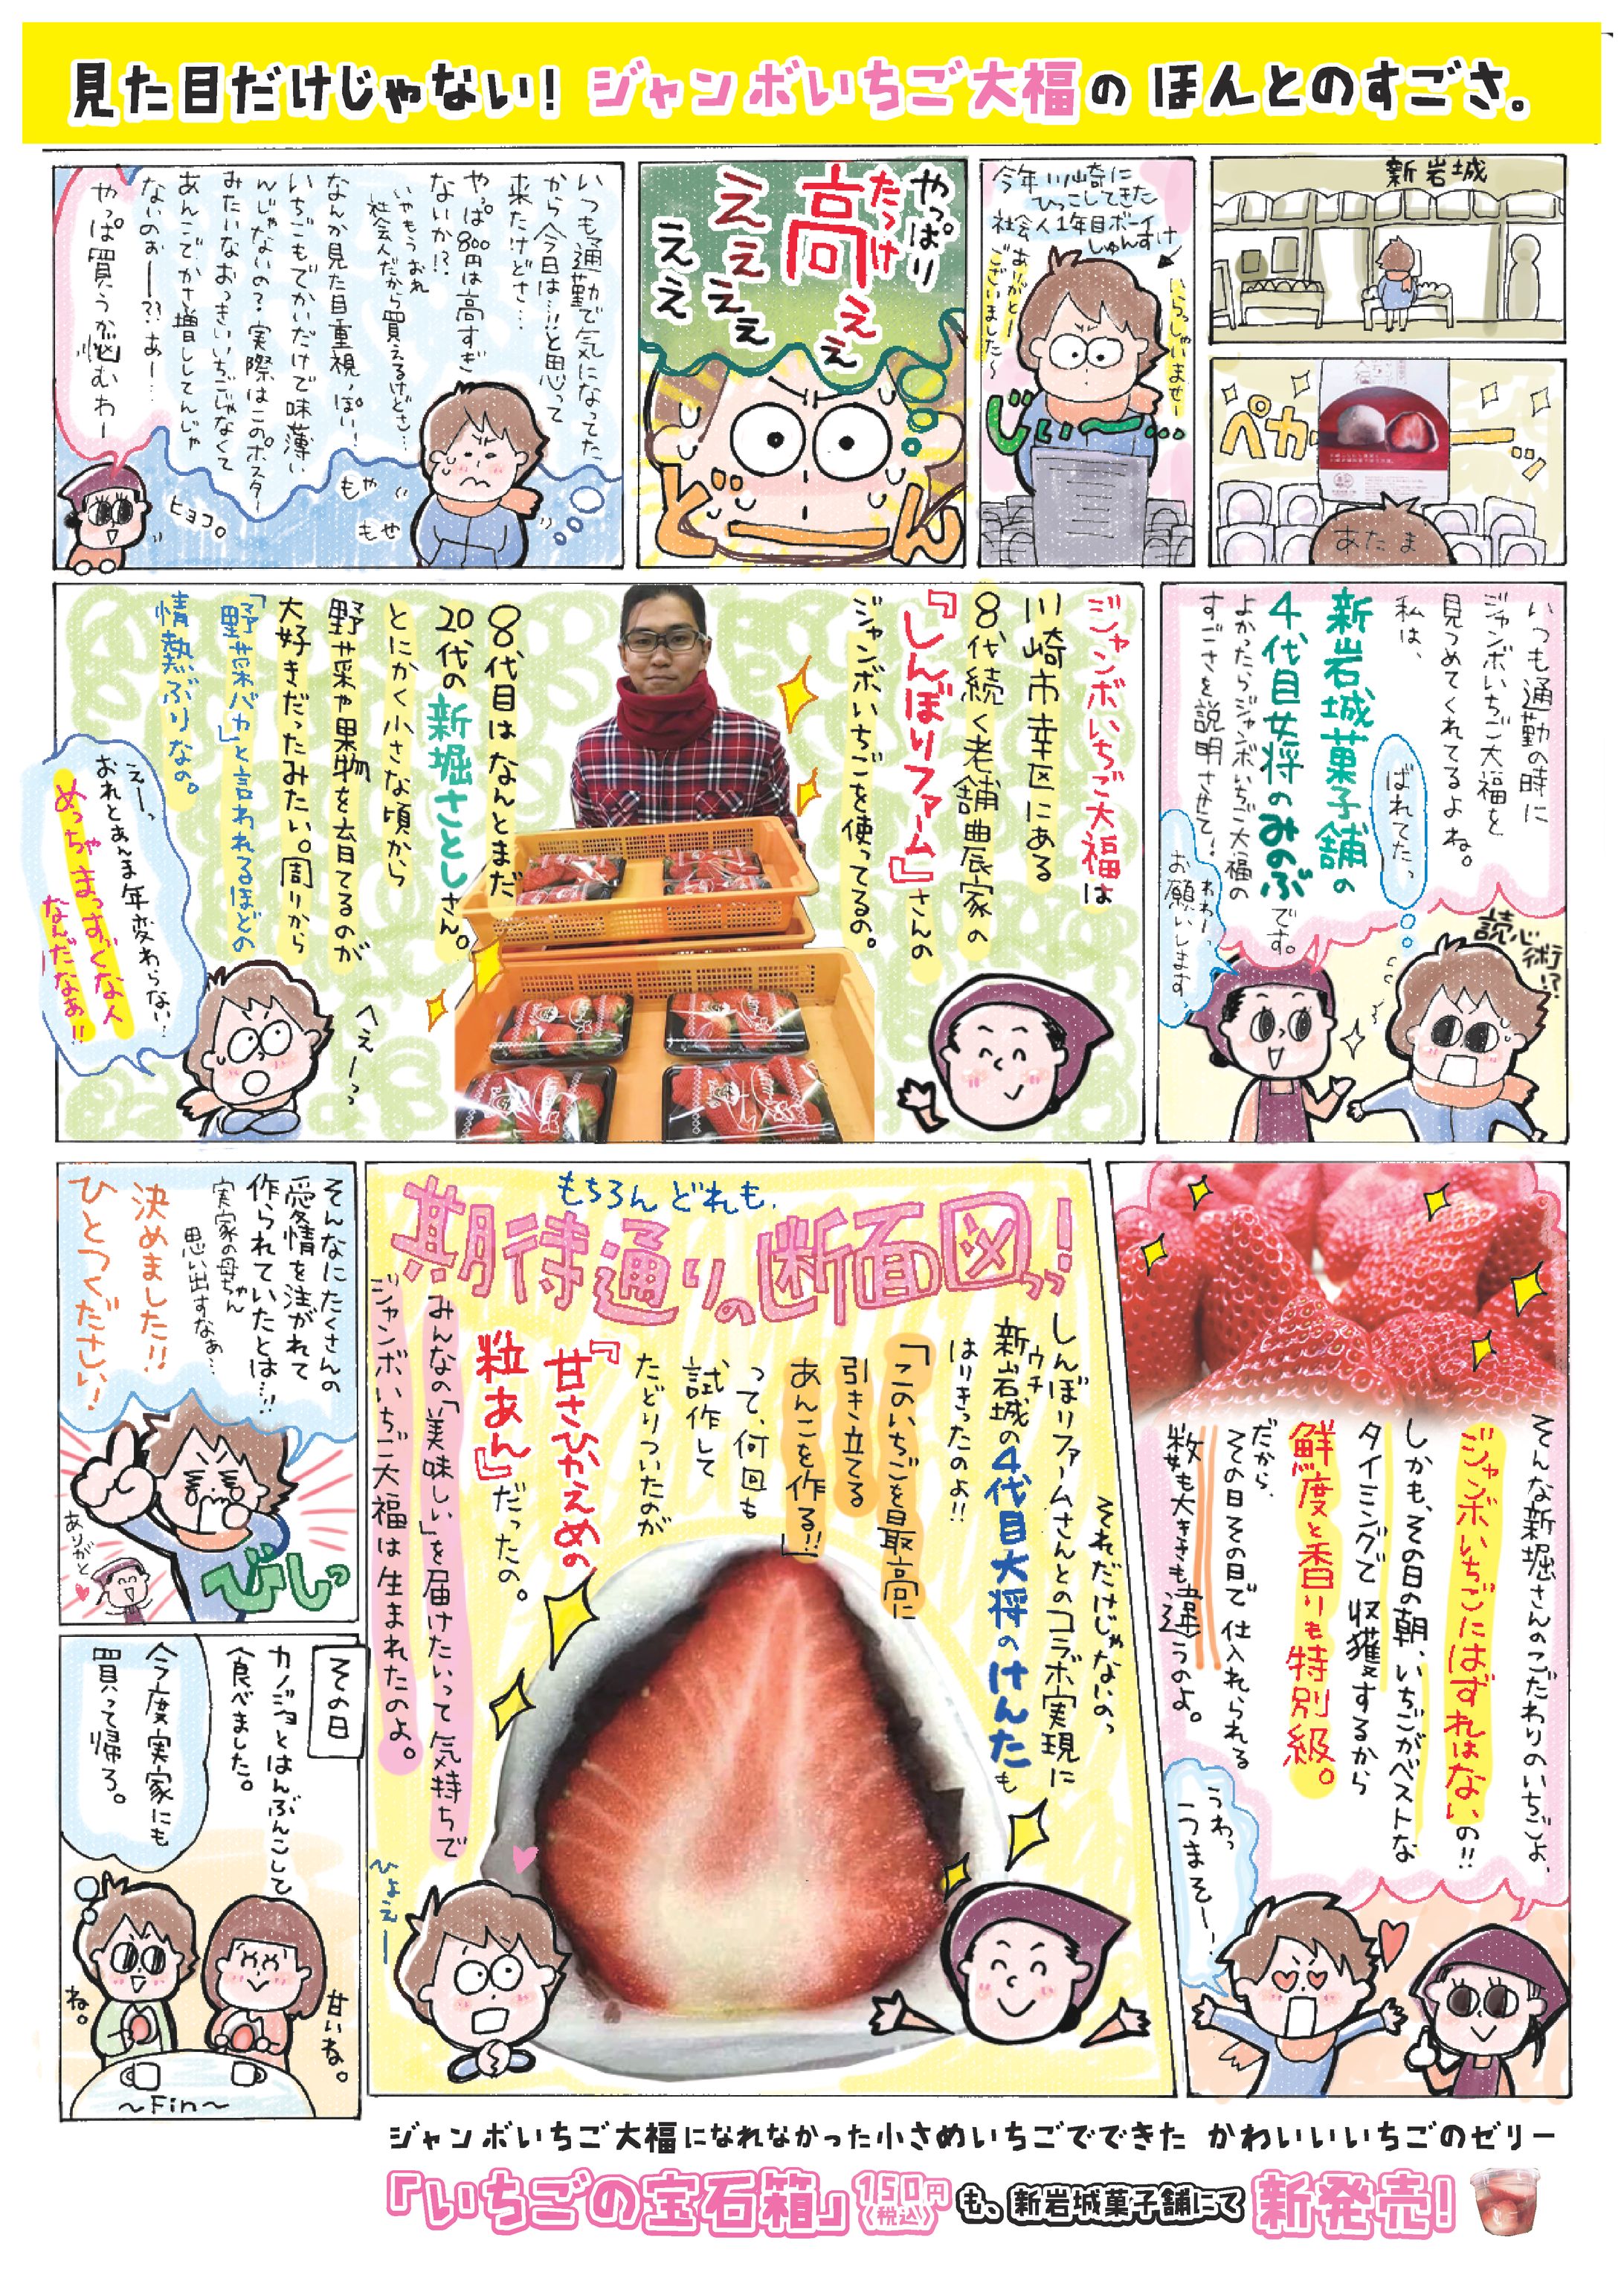 見た目だけじゃない！ジャンボいちご大福のほんとのすごさ。
新岩城
ペカーーッ
あたま
今年川崎に
ひっこしてきた
社会人1年目ボーイ
しゅんすけ
いらっしゃいませー
ありがとー
ございました～
じぃ～…
やっぱり
たっけ
高ぇぇ
えぇぇぇ
ぇぇぇ
どーん
いつも通勤で気になってた
から今日は…！と思って
来たけどさ…
やっぱ800円は高すぎ
ないか!?
いやもうおれ
社会人だから買えるけどさ…
なんか見た目重視っぽい！
いちごもでかいだけで味薄い
んじゃないの？実際はこのポスター
みたいなおっきいいちごじゃなくて
あんこでかさ増ししてんじゃ
ないのぉー？？あー…
やっぱ買うか悩むわー
もや
もや
ヒョコ。
いつも通勤の時に
ジャンボいちご大福を
見つめてくれてるよね。
私は、
新岩城菓子舗の
4代目女将のみのぶです。
よかったらジャンボいちご大福の
すごさを説明させて！
ばれてたっ
読心術!?
わわー、
お願いします。
ジャンボいちご大福は
川崎市幸区にある
8代続く老舗農家の
『しんぼりファーム』さんの
ジャンボいちごを使ってるの。
8代目はなんとまだ
20代の新堀さとしさん。
とにかく小さな頃から
野菜や果物を育てるのが
大好きだったみたい。周りから
「野菜バカ」と言われるほどの
情熱ぶりなの。
へぇーっっ
えー、
おれとあんま年変わらない…
めっちゃまっすぐな人
なんだなぁ!!
そんな新堀さんのこだわりのいちごよ、
ジャンボいちごにはずれはないの!!
しかも、その日の朝、いちごがベストな
タイミングで収穫するから
鮮度と香りも特別級。
だから、
その日その日で仕入れられる
数も大きさも違うのよ。
うわっ
うまそー！
もちろんどれも、
期待通りの断面図っっ！
それだけじゃないのっ
しんぼりファームさんとのコラボ実現に
新岩城の4代目大将のけんたも
ウチ
はりきったのよ!!
「このいちごを最高に
引き立てる
あんこを作る!!」
って、何回も
試作して
たどりついたのが
『甘さひかえめの
粒あん』だったの。
みんなの「美味しい」を届けたいって気持ちで
ジャンボいちご大福は生まれたのよ。
ひょえー
そんなにたくさんの
愛情を注がれて
作られていたとは…!!
実家の母ちゃん
思い出すなぁ…
決めました!!
ひとつください！
びしっ
ありがと
その日
カノジョとはんぶんこして
食べました。
今度実家にも
買って帰ろ。
甘いね。
ね。
～Fin～
ジャンボいちご大福になれなかった小さめいちごでできた かわいいいちごのゼリー
「いちごの宝石箱」150円〈税込〉も、新岩城菓子舗にて新発売！